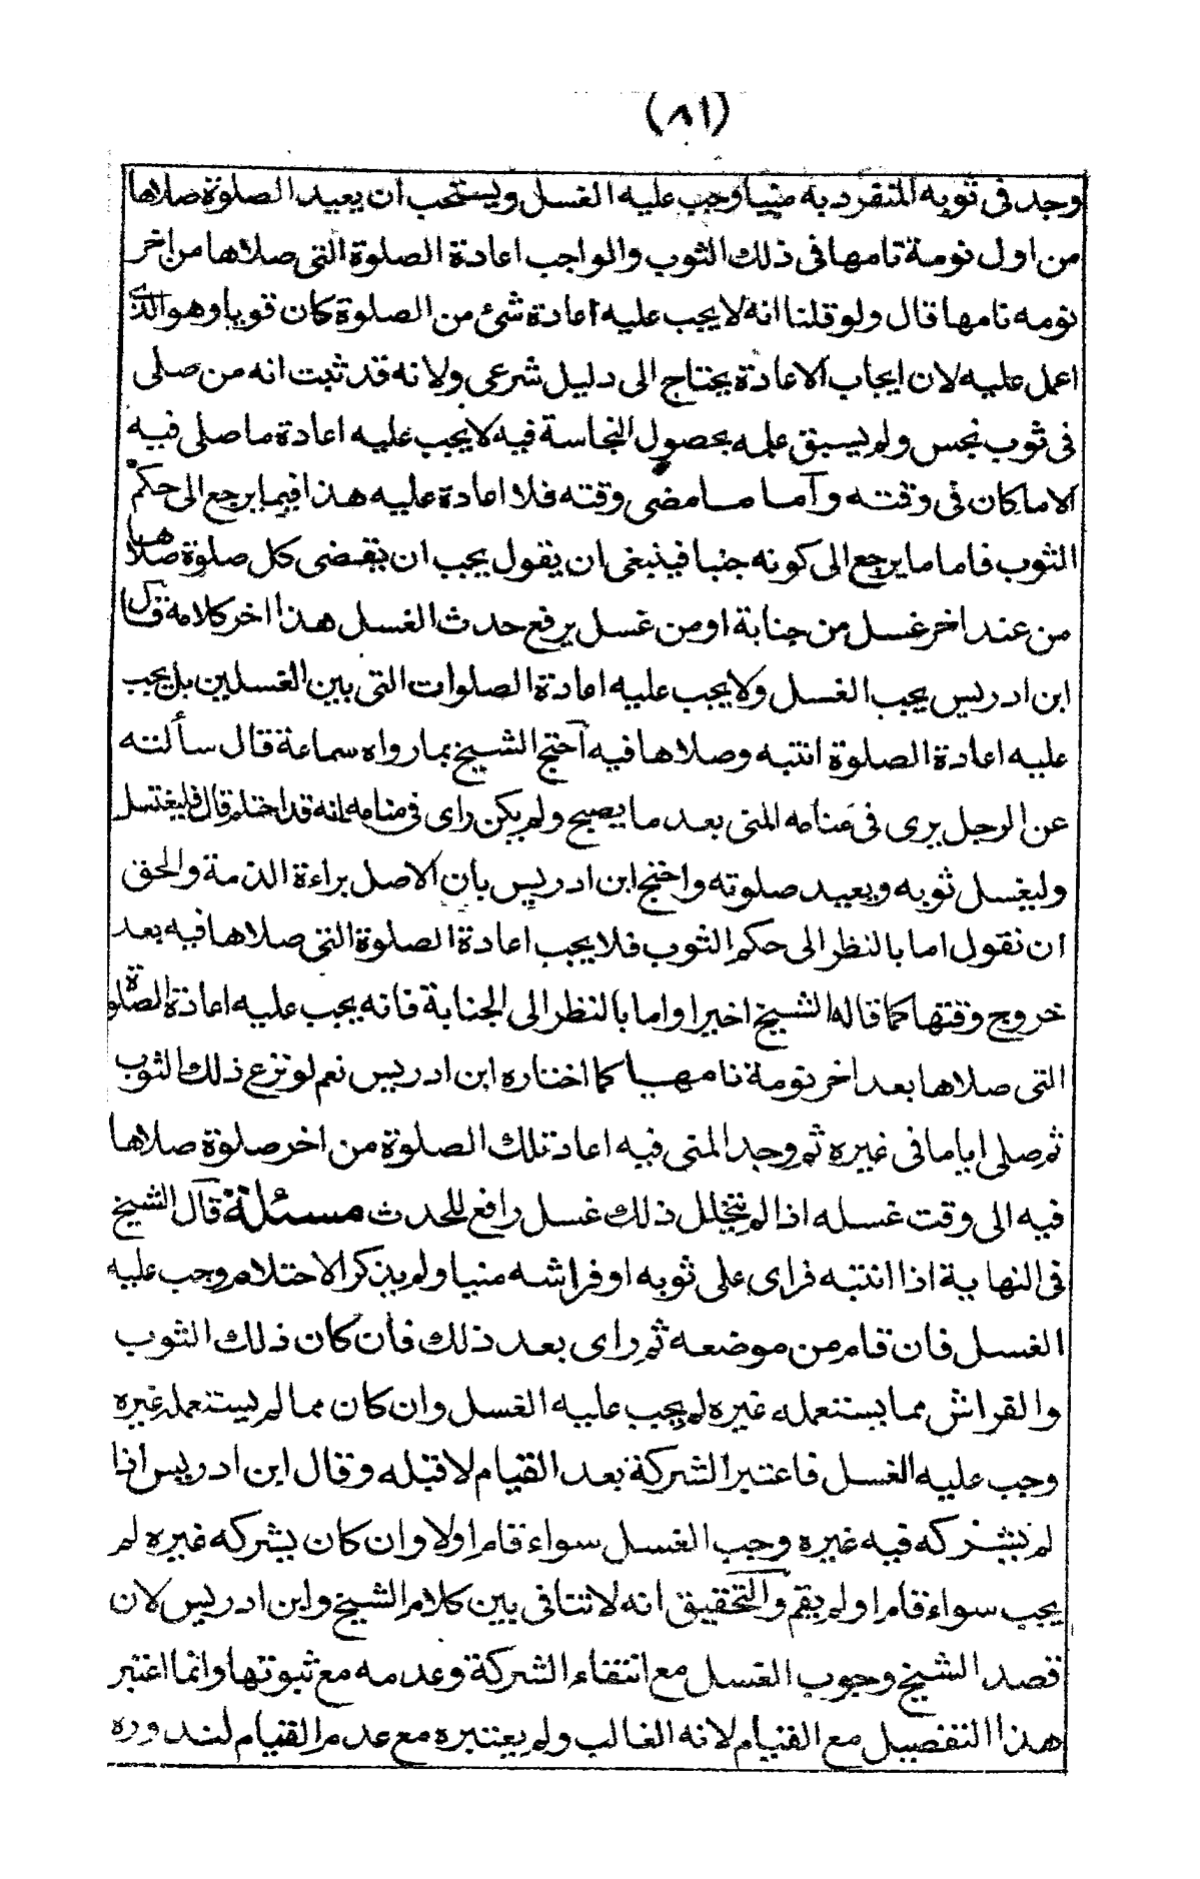 (٨١)
وجد فى ثوبه المتفرد به منيا وجب عليه الغسل ويستحب ان يعيد الصلوة صلاها
من اول نومة نامها فى ذلك الثوب والواجب اعادة الصلوة التى صلاها من اخر
نومه نامها قال ولو قلنا انه لا يجب عليه اعادة شئ من الصلوة كان قويا وهو الذى
اعمل عليه لان ايجاب الاعادة يحتاج الى دليل شرعى ولانه قد ثبت انه من صلى
فى ثوب نجس ولم يسبق علمه بحصول النجاسة فيه لا يجب عليه اعادة ما صلى فيه
الا ما كان فى وقته واما ما مضى وقته فلا اعادة عليه هذا فيما يرجع الى حكم
الثوب فاما ما يرجع الى كونه جنبا فينبغى ان يقول يجب ان يقضى كل صلوة صلاها
من عند اخر غسل من جنابة او من غسل يرفع حدث الغسل هذا اخر كلامه قال
ابن ادريس يجب الغسل ولا يجب عليه اعادة الصلوات التى بين الغسلين بل يجب
عليه اعادة الصلوة انتبه وصلاها فيه احتج الشيخ بما رواه سماعة قال سألته
عن الرجل يرى فى منامه المنى بعد ما يصبح ولم يكن راى فى منامه انه قد احتلم قال فليغتسل
وليغسل ثوبه ويعيد صلوته واحتج ابن ادريس بان الاصل براءة الذمة والحق
ان نقول اما بالنظر الى حكم الثوب فلا يجب اعادة الصلوة التى صلاها فيه بعد
خروج وقتها كما قاله الشيخ اخيرا واما بالنظر الى الجنابة فانه يجب عليه اعادة الصلوة
التى صلاها بعد اخر نومة نامها كما اختاره ابن ادريس نعم لو نزع ذلك الثوب
ثم صلى اياما فى غيره ثم وجد المنى فيه اعاد تلك الصلوة من اخر صلوة صلاها
فيه الى وقت غسله اذا لم يتخلل ذلك غسل رافع للحدث مسئلة قال الشيخ
فى النهاية اذا انتبه فراى على ثوبه او فراشه منيا ولم يذكر الاحتلام وجب عليه
الغسل فان قام من موضعه ثم راى بعد ذلك فان كان ذلك الثوب
والفراش مما يستعمله غيره لم يجب عليه الغسل وان كان مما لم يستعمله غيره
وجب عليه الغسل فاعتبر الشركة بعد القيام لا قبله وقال ابن ادريس اذا
لم يشركه فيه غيره وجب الغسل سواء قام اولا وان كان يشركه غيره لم
يجب سواء قام او لم يقم والتحقيق انه لا تنافى بين كلام الشيخ وابن ادريس لان
قصد الشيخ وجوب الغسل مع انتفاء الشركة وعدمه مع ثبوتها وانما اعتبر
هذا التفصيل مع القيام لانه الغالب ولم يعتبره مع عدم القيام لندوره